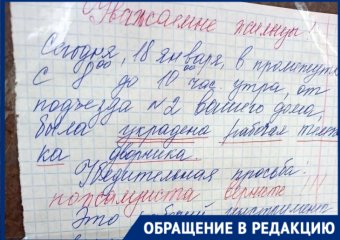 Уважаемые жильцы!
Сегодня, 18 января, в промежутке
с 8⁰⁰ до 10⁰⁰ час утра, от
подъезда №2 вашего дома,
была украдена рабочая тележ
ка дворника.
Убедительная просьба:
пожалуйста верните!!!
Это рабочий инструмент
ОБРАЩЕНИЕ В РЕДАКЦИЮ